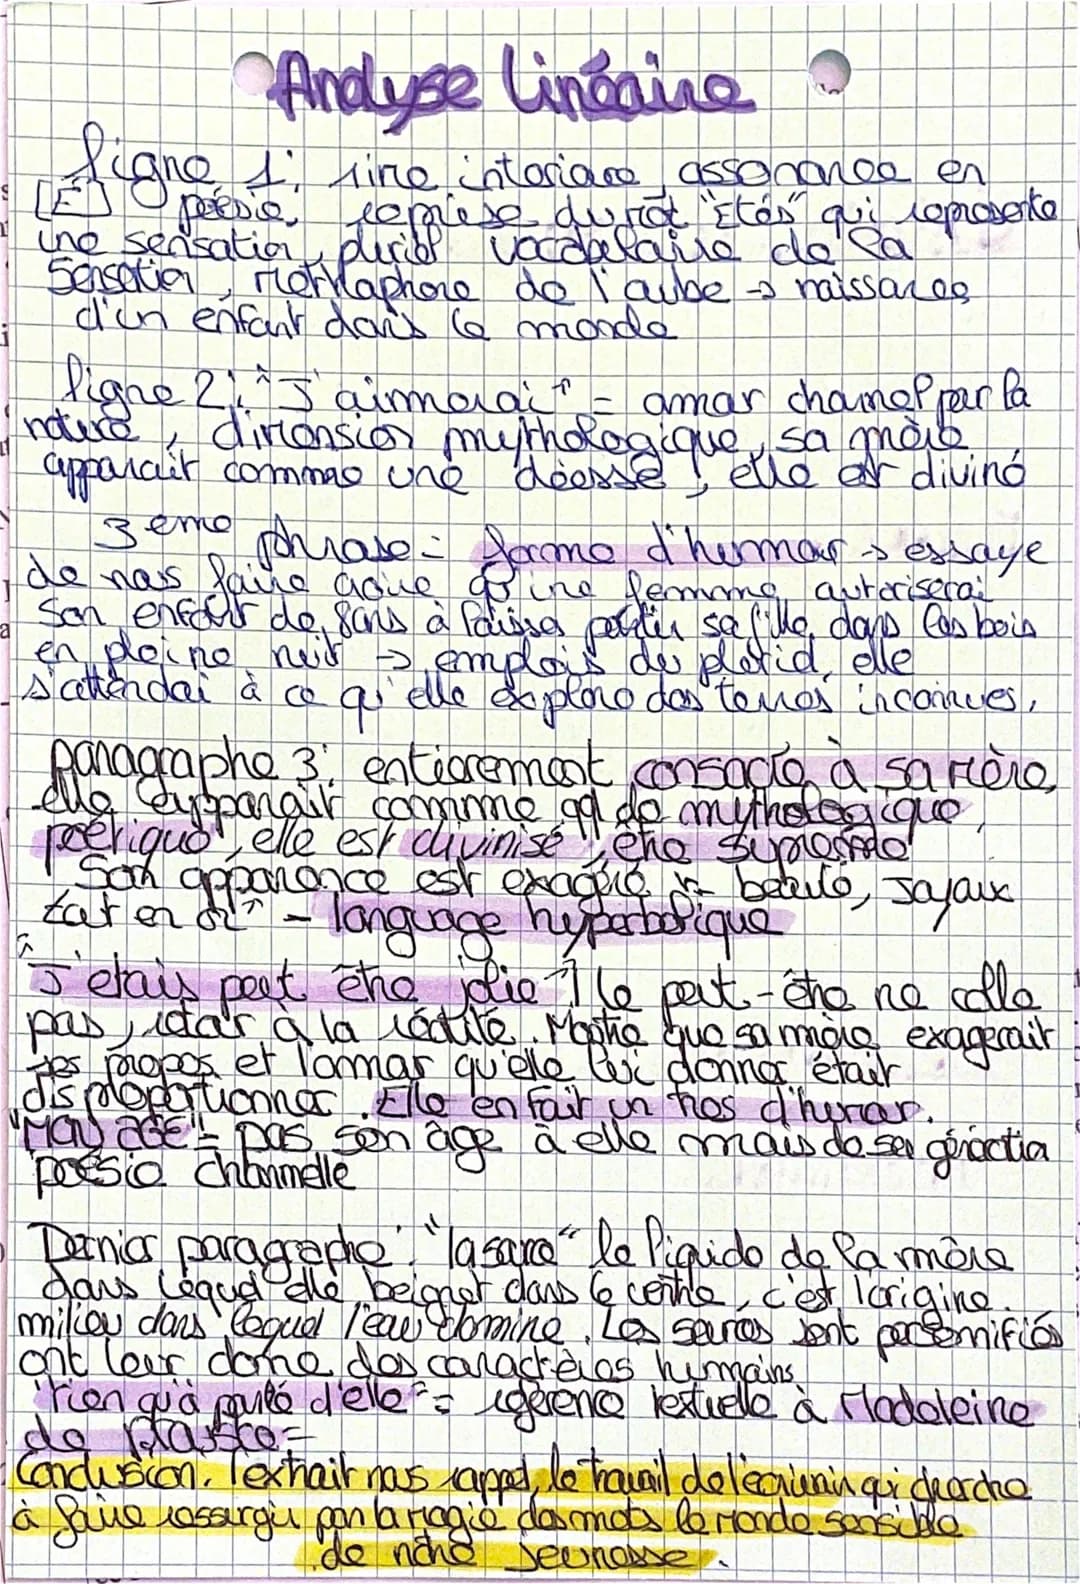 Analyse linéaire
Ligne 1: rime interieure, assonance en
[É] poésie, reprise du mot "Etés" qui represente
une sensation, pluriel vocabulaire de la
sensation, métaphore de l'aube → naissance
d'un enfant dans le monde
Ligne 2: "J'aimerai" = amour charnel par la
nature, dimension mythologique, sa mère
apparait comme une déesse, elle est divine
3 eme phrase = forme d'humour → essaye
de nous faire croire qu'une femme autoriserai
son enfant de 8ans à laisser partir sa fille dans les bois
en pleine nuit → emplois du pluriel, elle
s'attendai à ce qu'elle explore des terres inconnues.
paragraphe 3: entierement consacré à sa mère,
elle apparait comme qq de mythologique,
poétique, elle est divinisé, être supreme
Son apparence est exagéré "beauté, joyaux
tout en or" - language hyperbolique
"J'etais peut être jolie" le peut-être ne colle
pas, retour à la réalité. Montre que sa mère exagerait
ses propos et l'amour qu'elle lui donner était
disproportionner. Elle en fait un tros d'humour.
"Mon age" = pas son âge à elle mais de sa génération
poésie charnnelle
Dernier paragraphe: "la source" le liquide de la mère
dans lequel elle beignet dans le ventre, c'est l'origine.
milieu dans lequel l'eau domine. Les sources sont personnifiés
ont leur donne des caractères humains.
"rien qu'à parlé d'elle" = référence textuelle à Madeleine
de Proust =
Conclusion: l'extrait nous rappel le travail de l'écrivain qui cherche
à faire ressurgir par la magie des mots le monde sensible
de notre jeunesse.